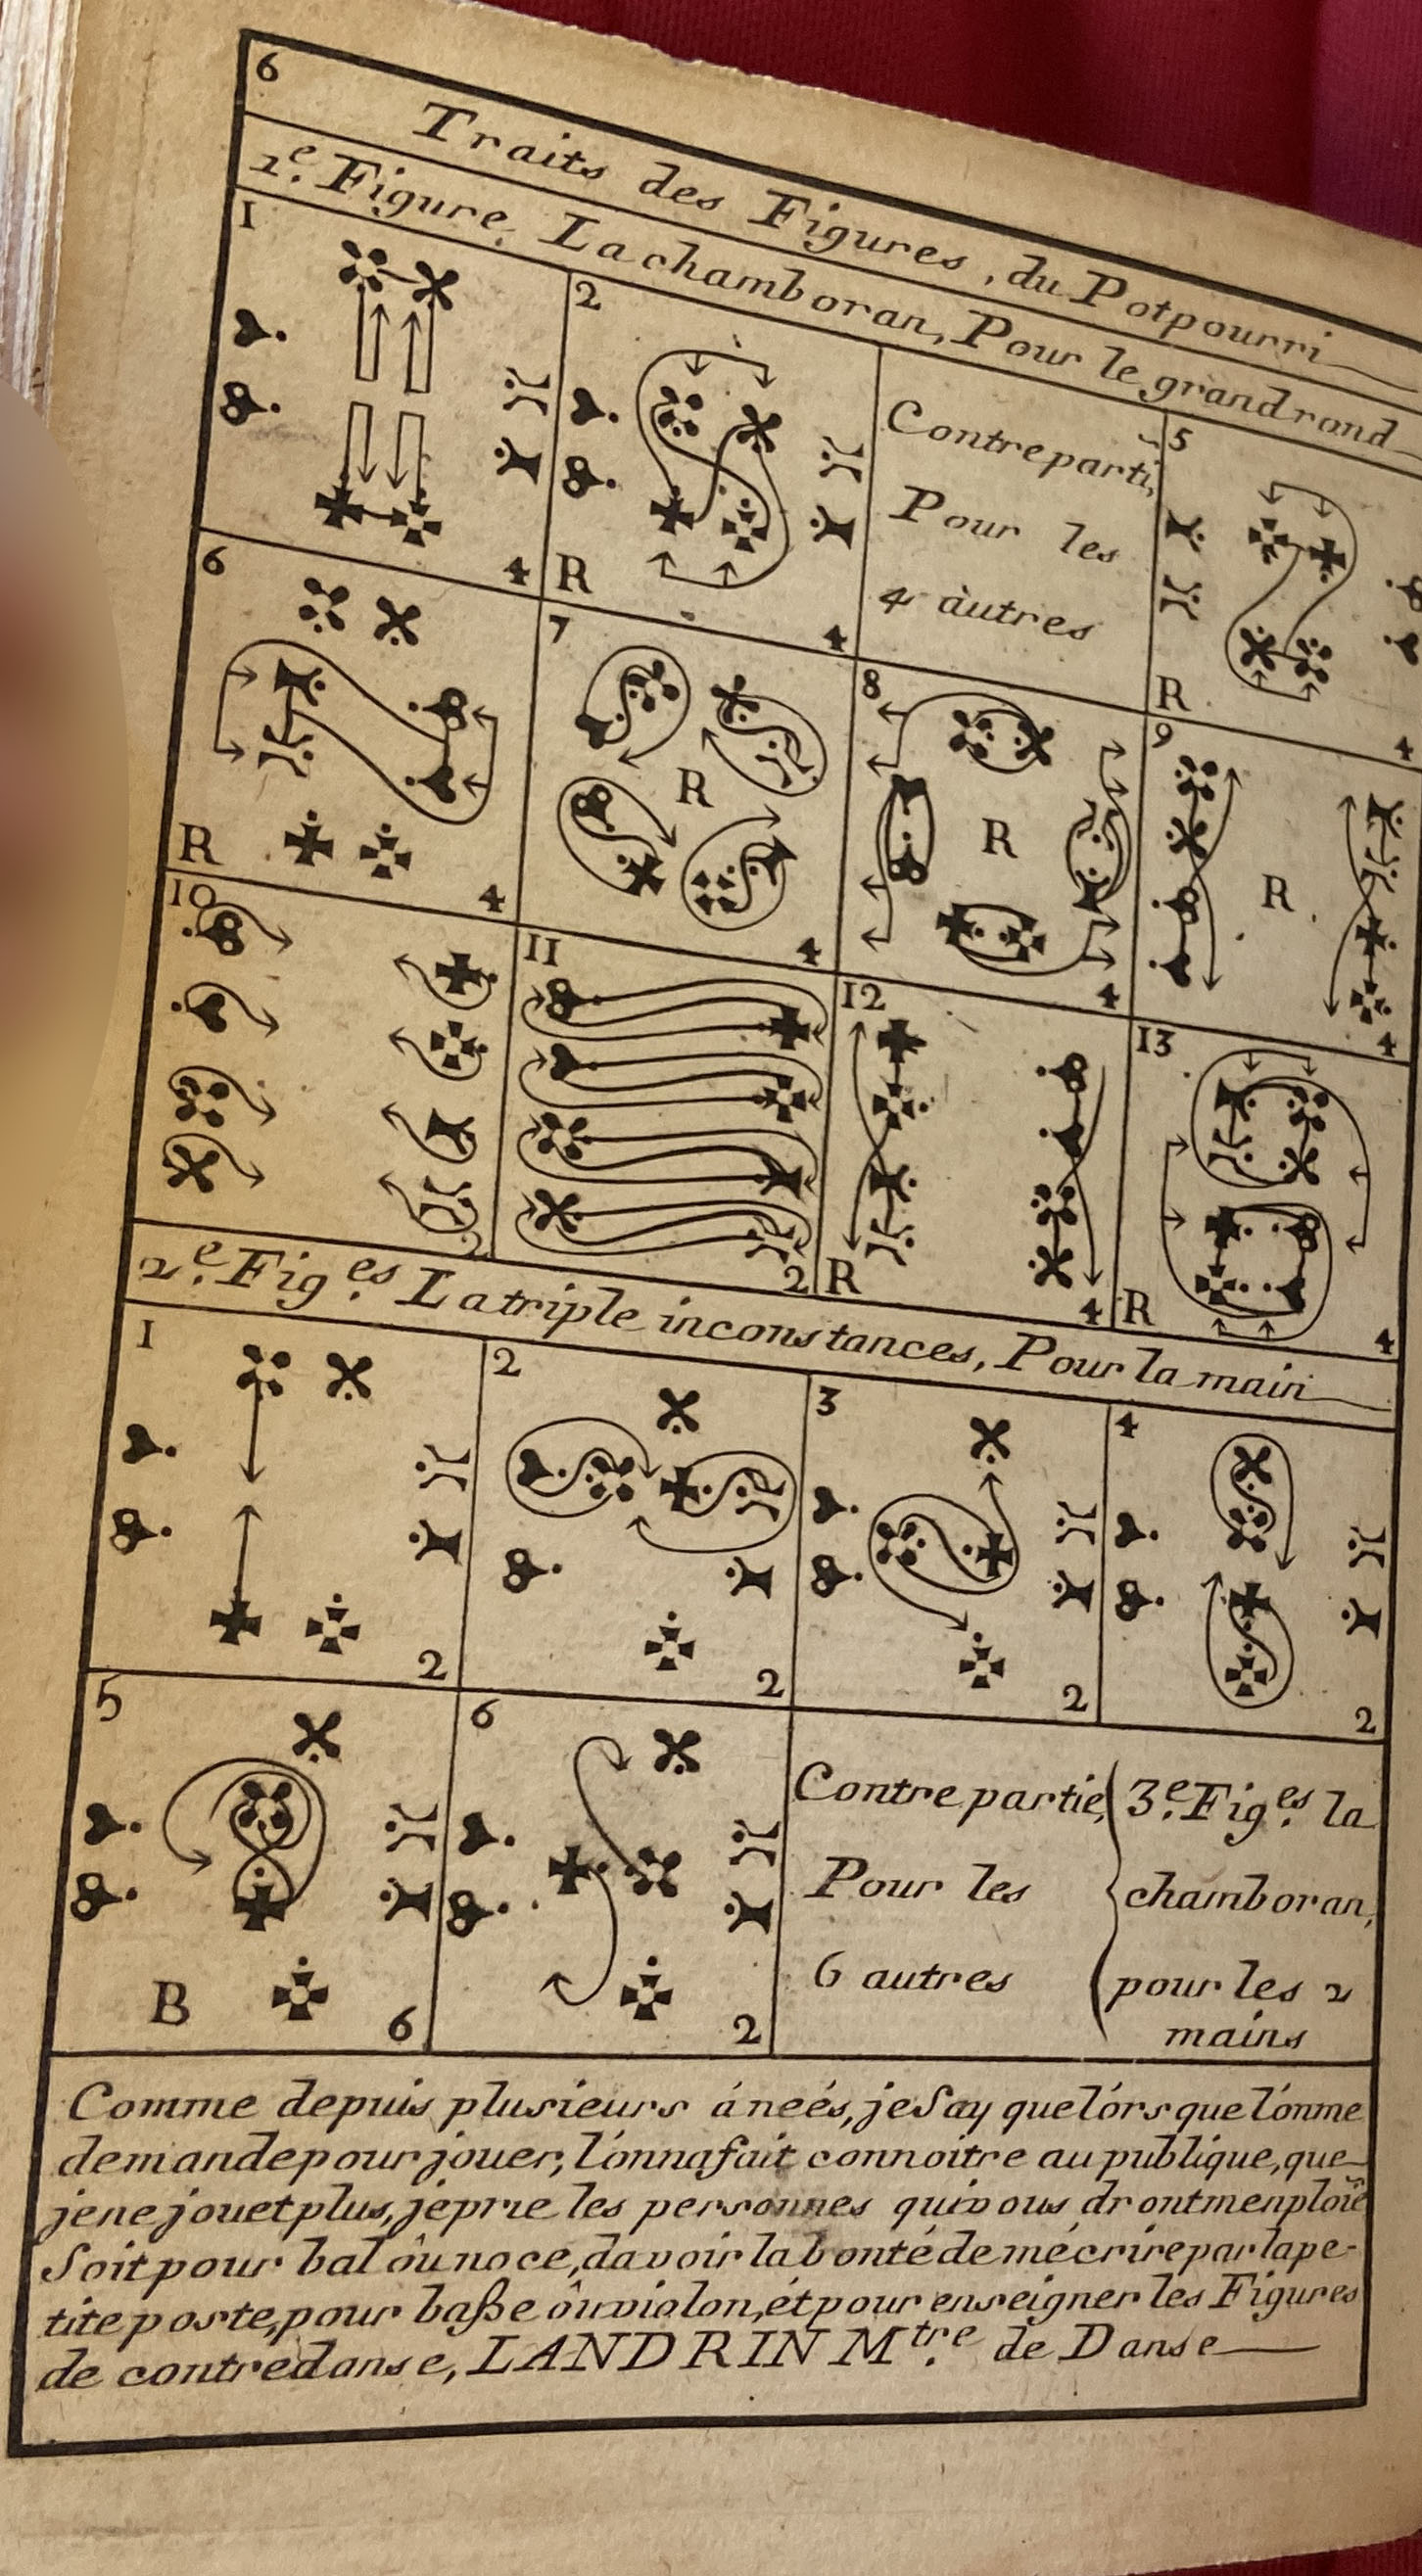 6
Traits des Figures, du Potpourri
1.e Figure, Lachamboran, Pour le grand rond
1
4
2
R
4
Contreparti,
Pour les
4 àutres
5
R
4
6
R
4
7
R
4
8
R
4
9
R
4
10
2
11
2
12
R
4
13
R
4
2.e Fig.es La triple inconstances, Pour la main
1
2
2
2
3
2
4
2
5
B
6
6
2
Contre partie,
Pour les
6 autres
3.e Fig.es la
chamboran,
pour les 2
mains
Comme depuis plusieurs áneés, je Say que lórs que lónme
demande pour jouer, lónna fait connoitre au publique, que
je ne jouet plus, jéprie les personnes qui vous dront menploïe
Soit pour bal óu noce, davoir la bonté de mécrire par la pe-
tite poste, pour baße óu violon, ét pour enseigner les Figures
de contredanse, LANDRIN M.tre de Danse